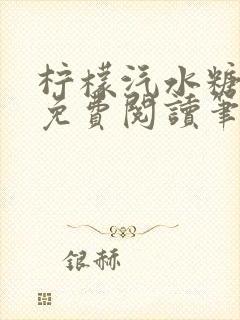 柠檬汽水糖
免費閱讀筆
银赫